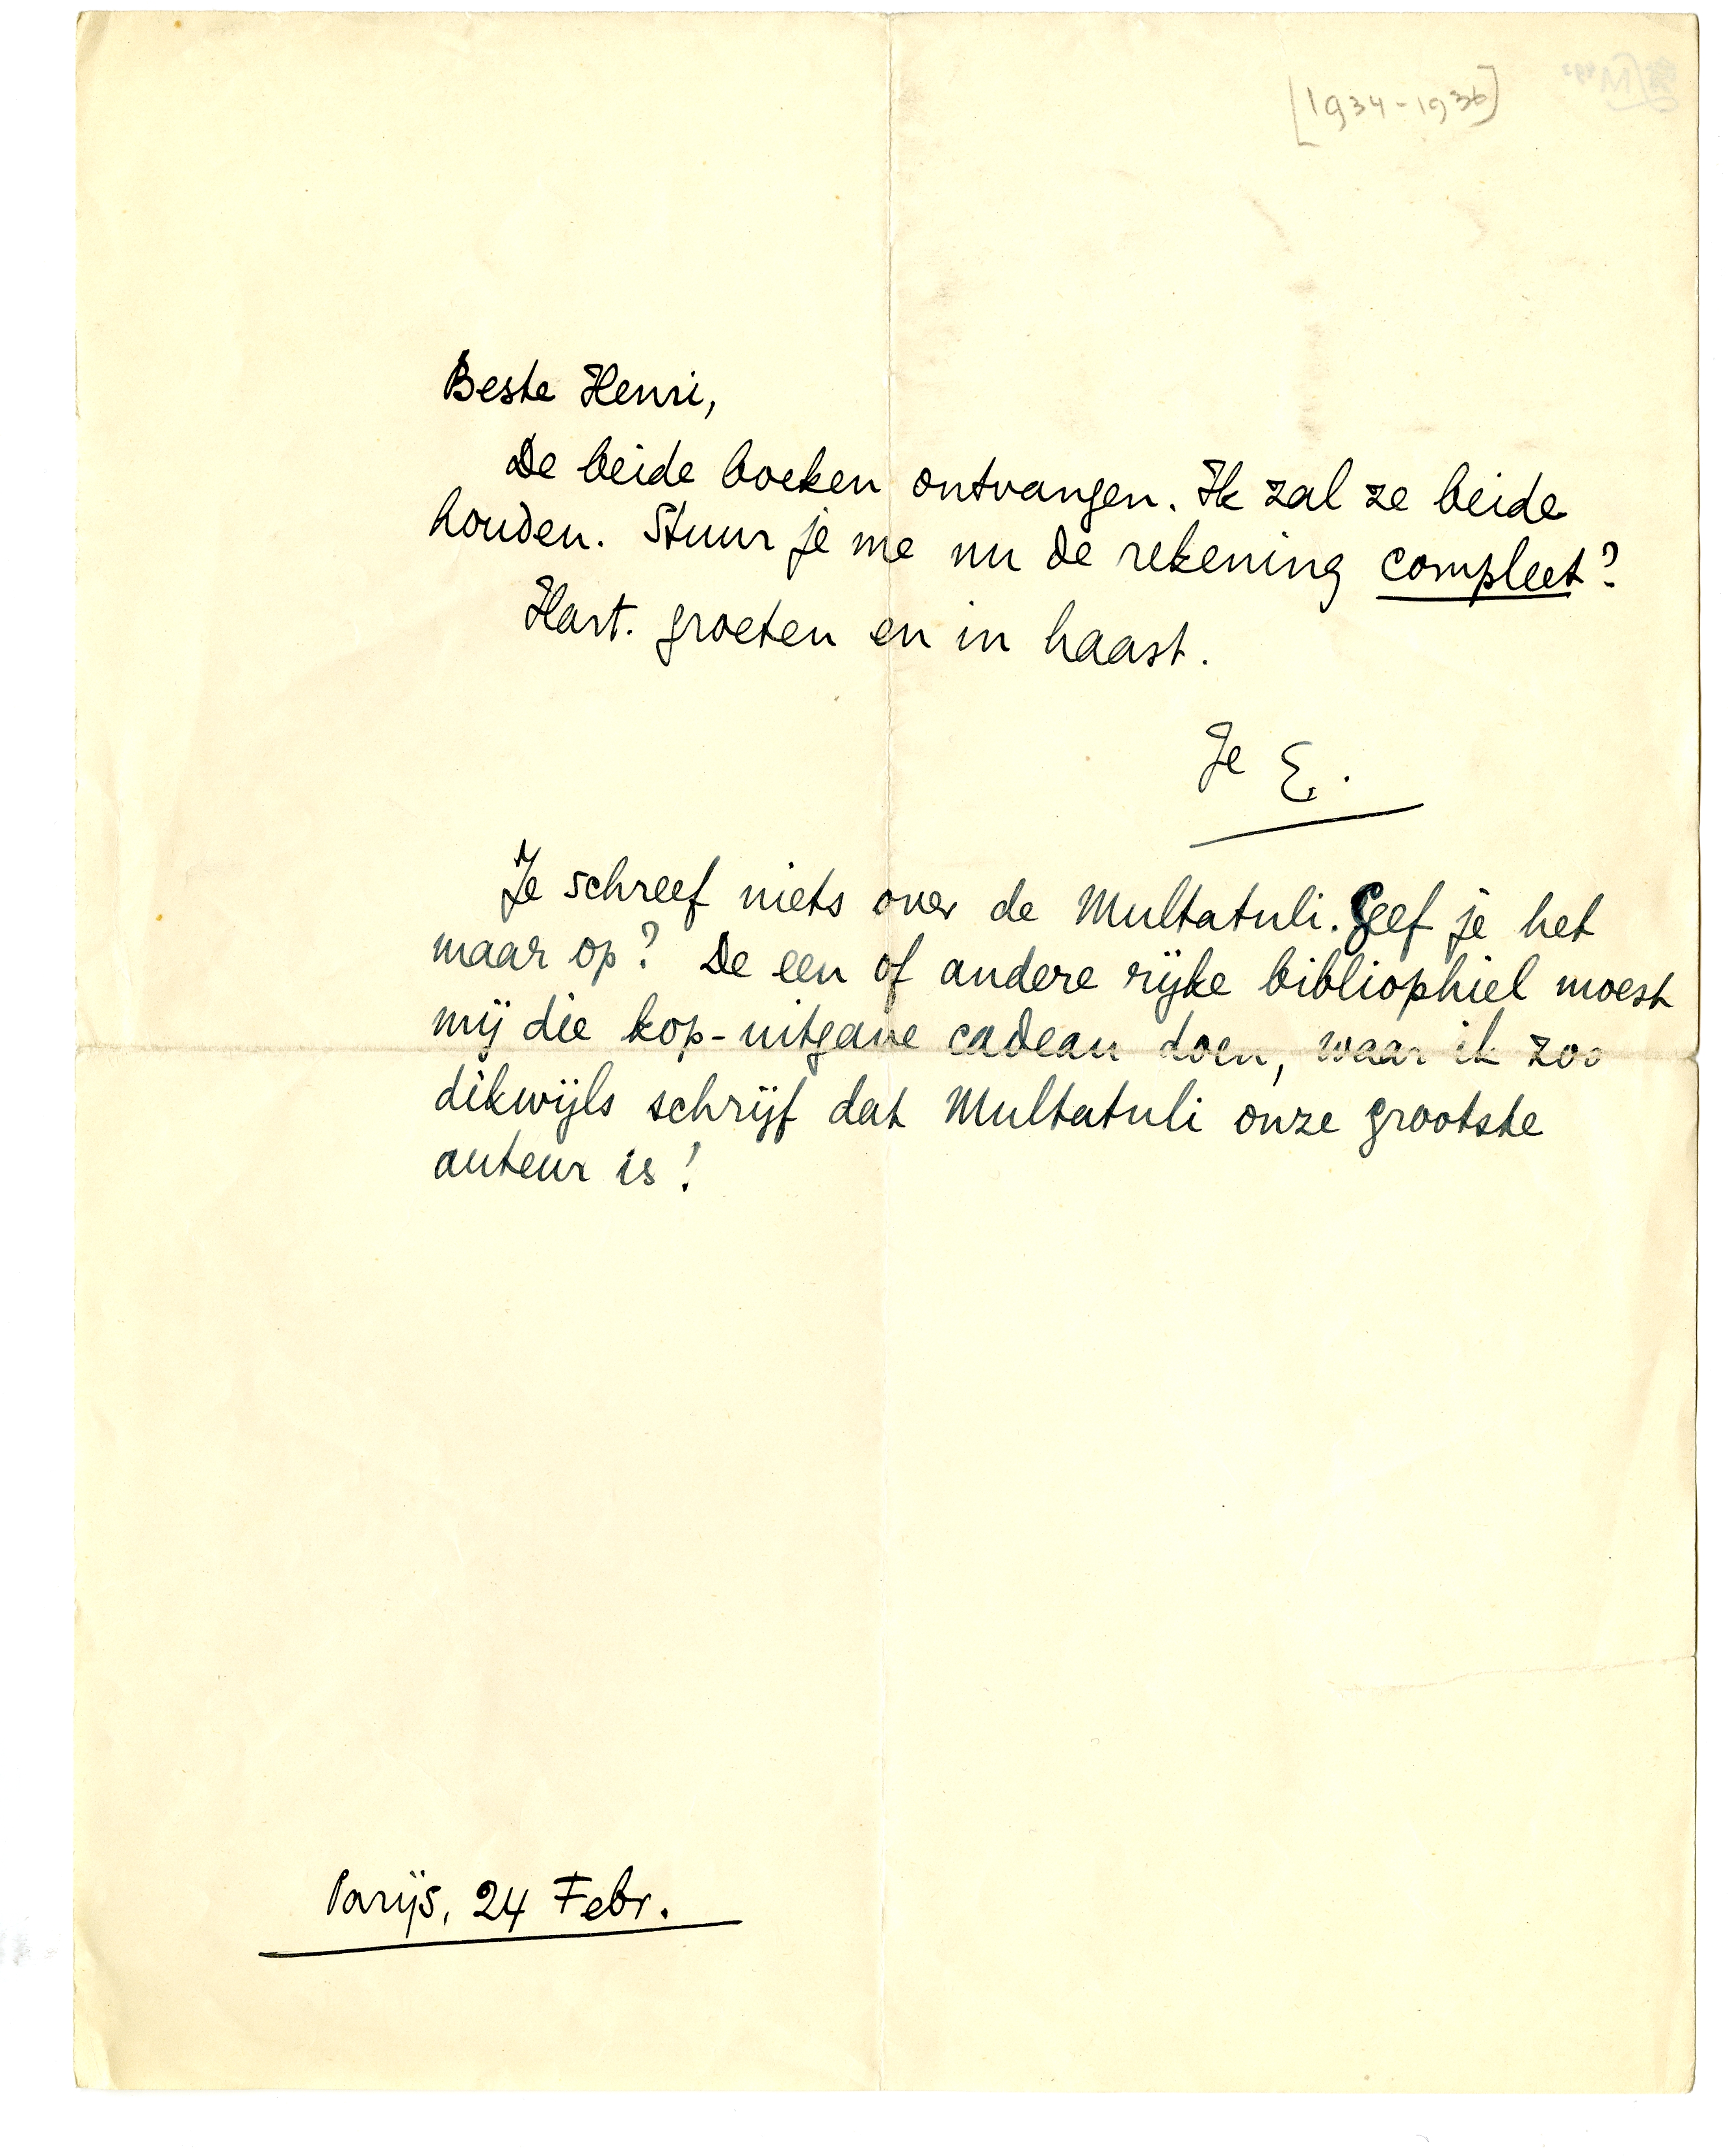 [1934-1936]
Beste Henri,
De beide boeken ontvangen. Ik zal ze beide
houden. Stuur je me nu de rekening compleet?
Hart. groeten en in haast.
Je E.
Je schreef niets over de Multatuli. Geef je het
maar op? De een of andere rijke bibliophiel moest
mij die kop-uitgave cadeau doen, waar ik zoo
dikwijls schrijf dat Multatuli onze grootste
auteur is!
Parijs, 24 Febr.